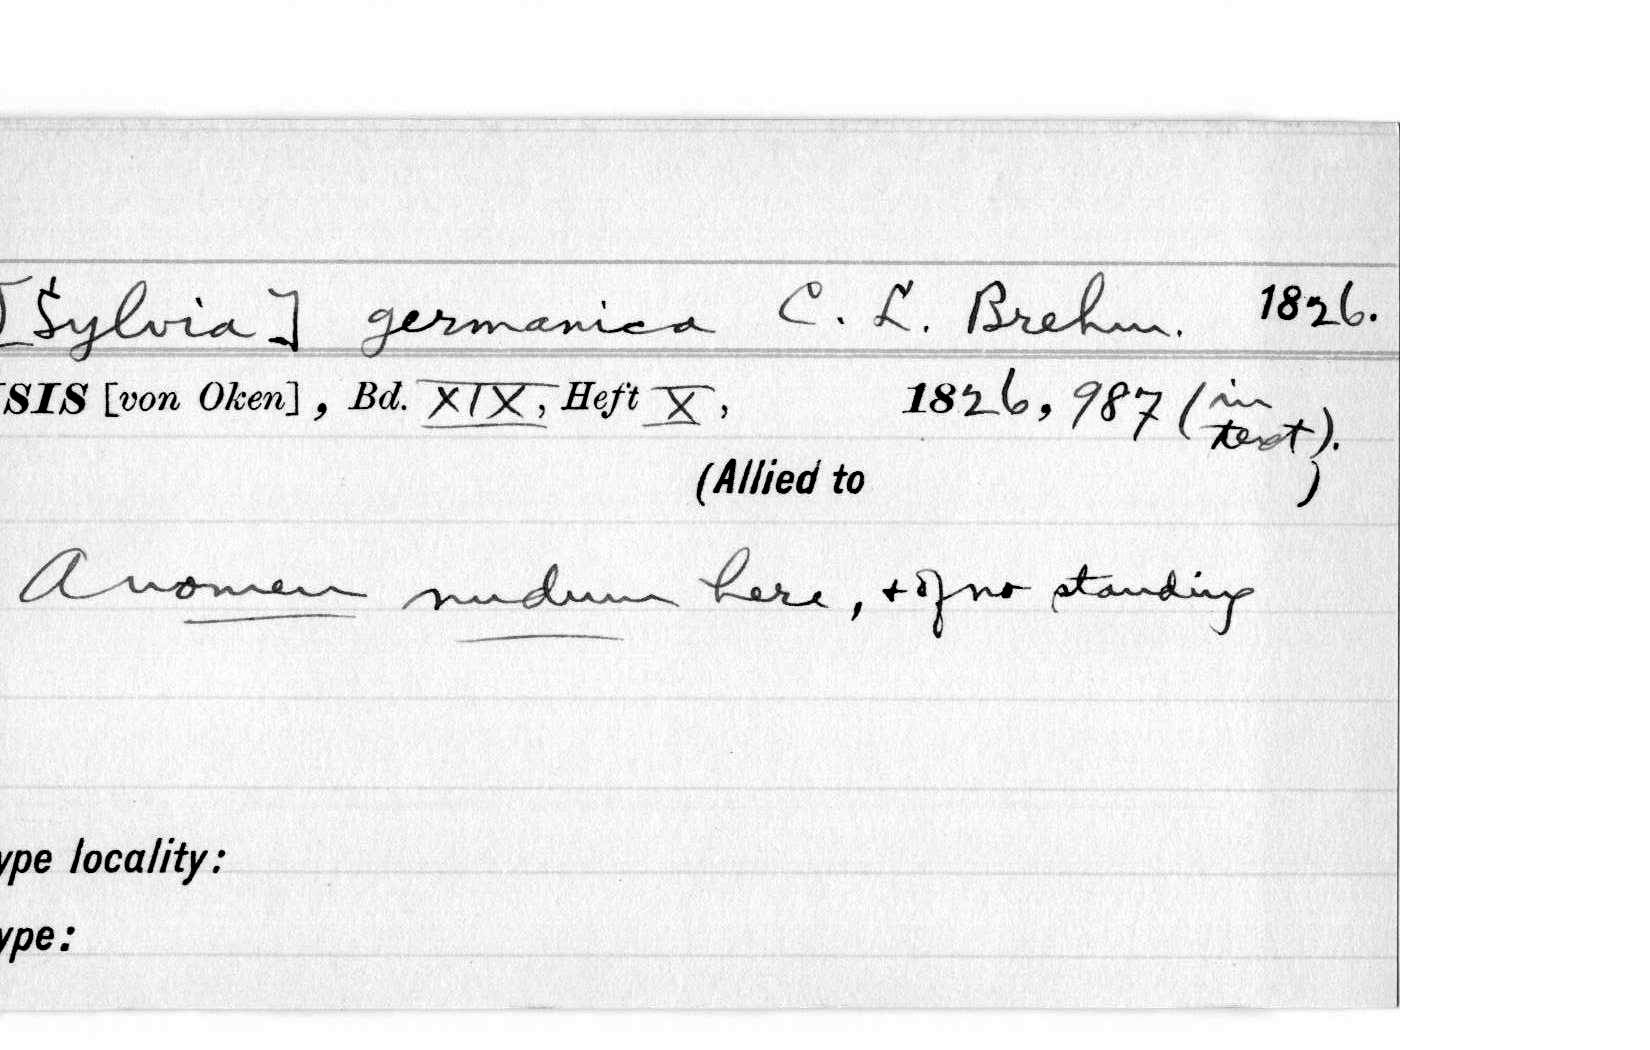 [Sylvia] germanica C. L. Brehm. 1826.
SIS [von Oken], Bd. XIX, Heft X, 1826, 987 (in text).
(Allied to )
A nomen nudum here, + of no standing
ype locality:
ype: